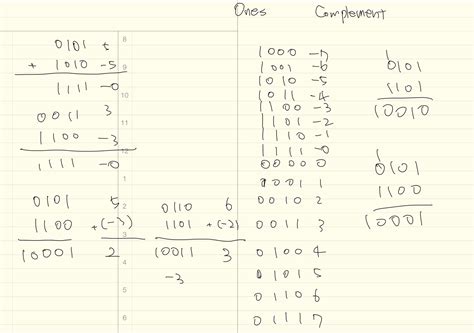 Ones Complement
0101 5
+ 1010 -5
1111 -0
0011 3
1100 -3
1111 -0
0101 5
1100 +(-3)
10001 2
0110 6
1101 +(-2)
10011 3
-3
1000 -7
1001 -6
1010 -5
1011 -4
1100 -3
1101 -2
1110 -1
1111 -0
0000 0
0001 1
0010 2
0011 3
0100 4
0101 5
0110 6
0111 7
1
0101
1101
10010
0101
1100
10001
8
9
10
11
12
1
2
3
4
5
6